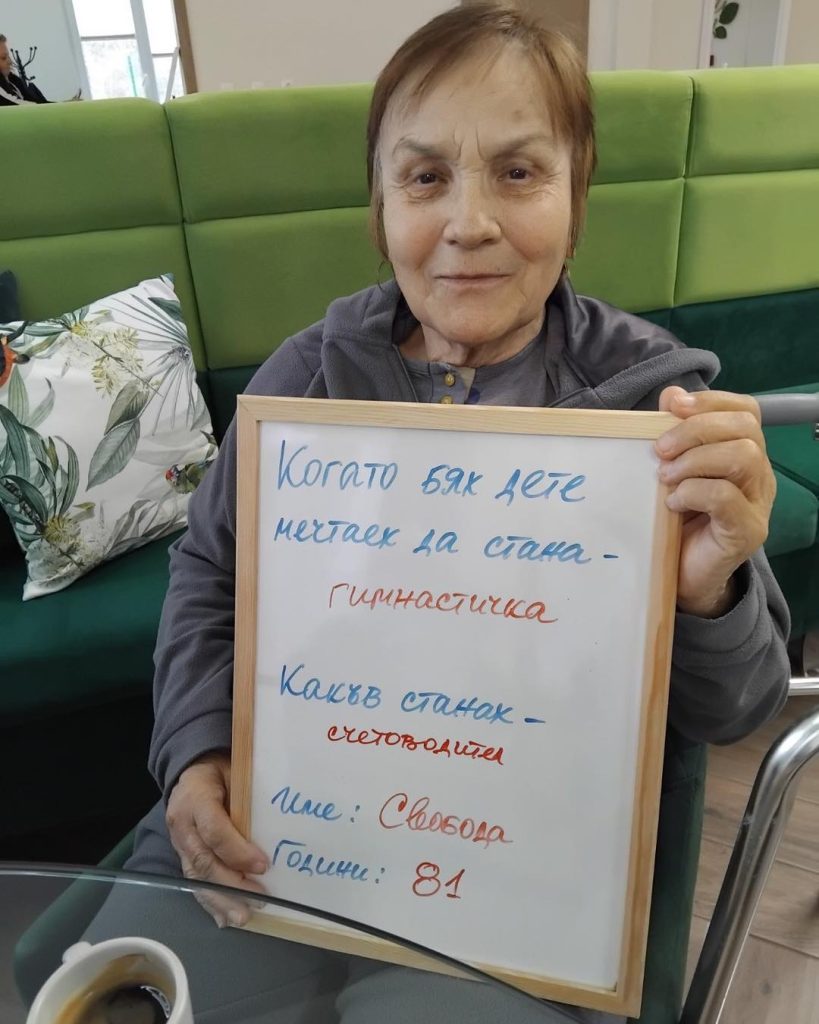 Когато бях дете
мечтаех да стана -
гимнастичка
Какъв станах -
счетоводител
Име: Свобода
Години: 81